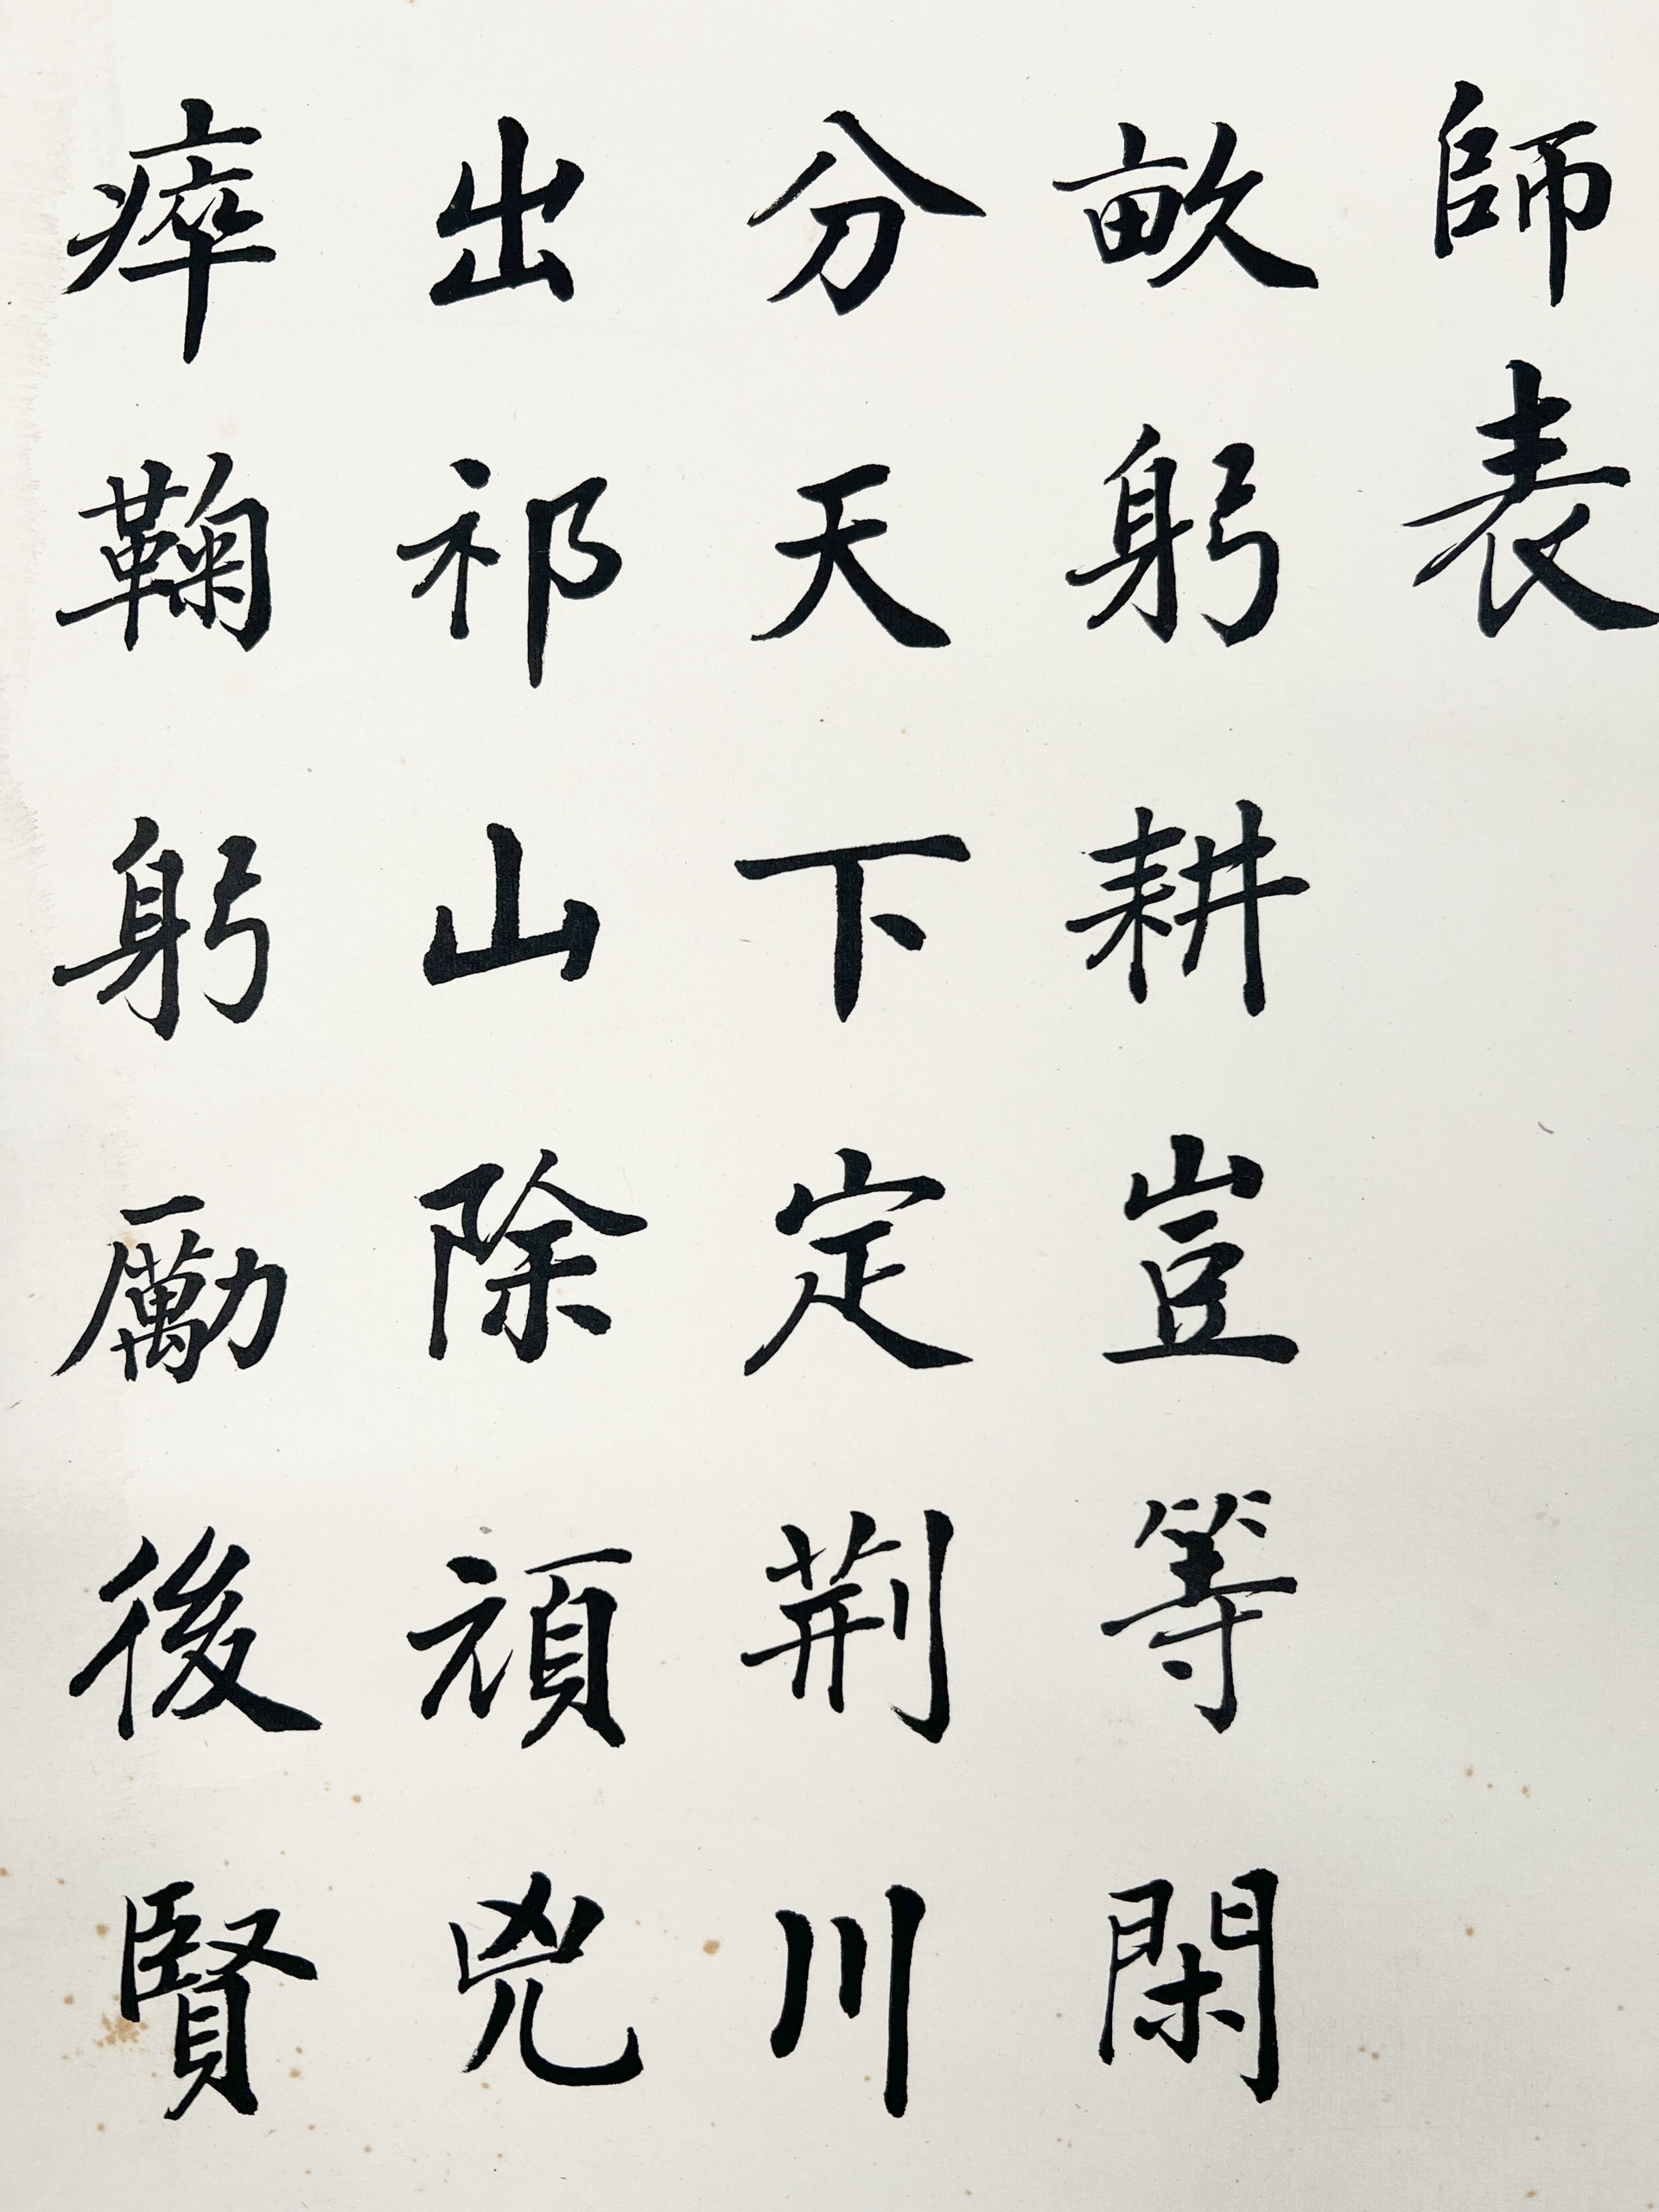 師表
畝躬耕豈等閑
分天下定荆川
出祁山除頑兇
瘁鞠躬勵後賢